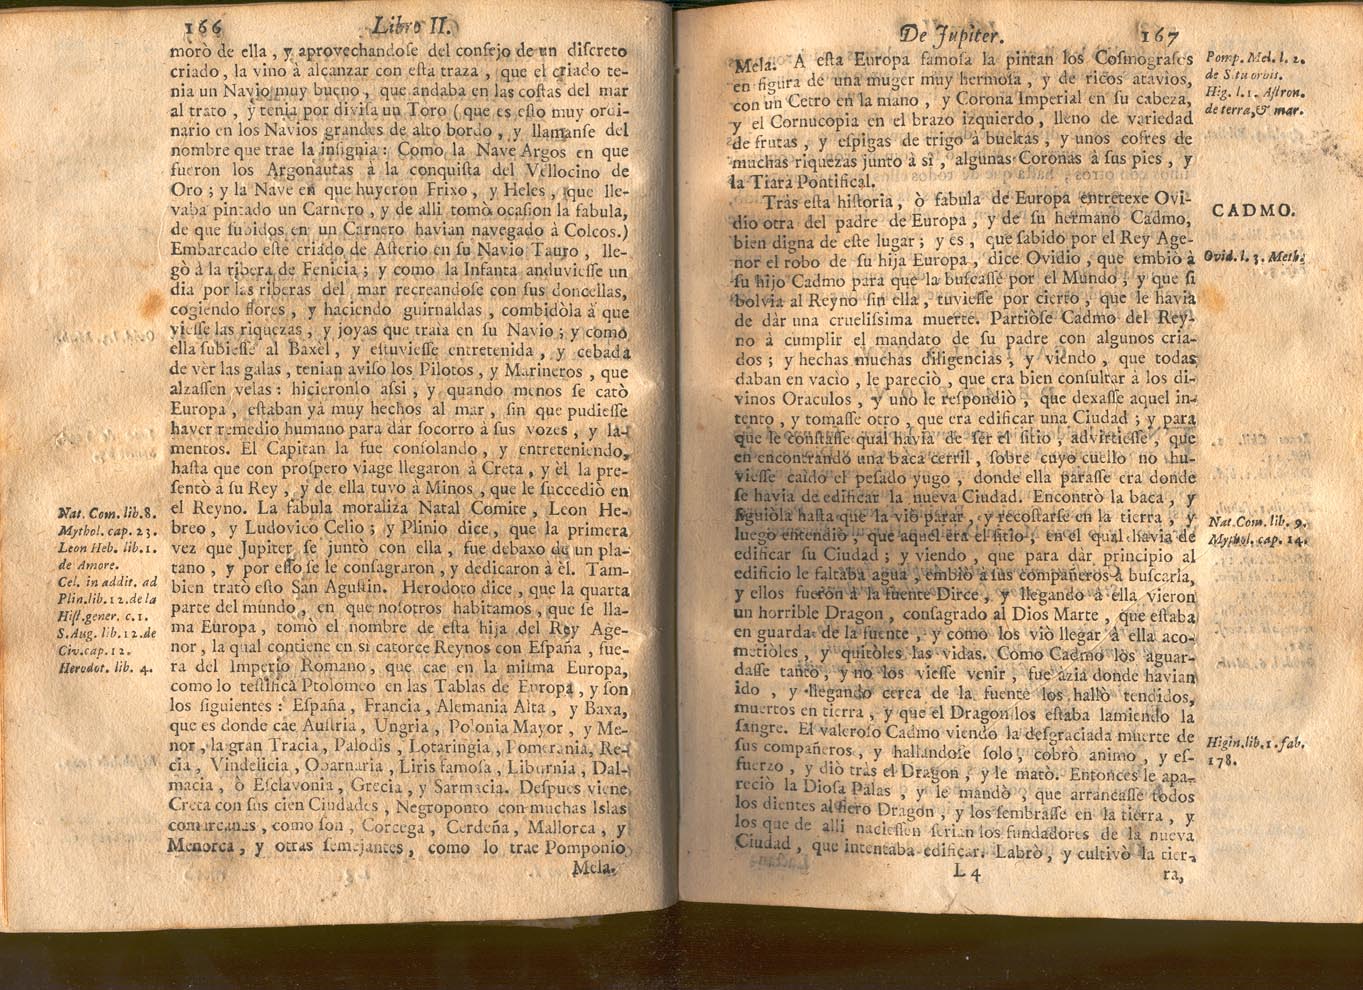 166 Libro II.
morò de ella, y aprovechandose del consejo de un discreto
criado, la vino à alcançar con esta traza, que el criado te-
nia un Navio muy bueno, que andaba en las costas del mar
al trato, y tenia por divisa un Toro (que es esto muy ordi-
nario en los Navios grandes de alto bordo, y llamanse del
nombre que trae la insignia: Como la Nave Argos en que
fueron los Argonautas à la conquista del Vellocino de
Oro; y la Nave en que huyeron Frixo, y Heles, que lle-
vaba pintado un Carnero, y de alli tomò ocasion la fabula,
de que subidos en un Carnero havian navegado à Colcos.)
Embarcado este criado de Asterio en su Navio Tauro, lle-
gò à la ribera de Fenicia; y como la Infanta anduviesse un
dia por las riberas del mar recreandose con sus doncellas,
cogiendo flores, y haciendo guirnaldas, combidòla à que
viesse las riquezas, y joyas que traìa en su Navio; y como
ella subiesse al Baxel, y estuviesse entretenida, y cebada
de ver las galas, tenian aviso los Pilotos, y Marineros, que
alzassen velas: hicieronlo assi, y quando menos se catò
Europa, estaban yà muy hechos al mar, sin que pudiesse
haver remedio humano para dar socorro à sus vozes, y la-
mentos. El Capitan la fue consolando, y entreteniendo,
hasta que con prospero viage llegaron à Creta, y èl la pre-
sentò à su Rey, y de ella tuvo à Minos, que le succediò en
el Reyno. La fabula moraliza Natal Comite, Leon He-
breo, y Ludovico Celio; y Plinio dice, que la primera
vez que Jupiter se juntò con ella, fue debaxo de un pla-
tano, y por esso se le consagraron, y dedicaron à èl. Tam-
bien tratò esto San Agustin. Herodoto dice, que la quarta
parte del mundo, en que nosotros habitamos, que se lla-
ma Europa, tomò el nombre de esta hija del Rey Age-
nor, la qual contiene en sì catorce Reynos con España, fue-
ra del Imperio Romano, que cae en la misma Europa,
como lo testifica Ptolomeo en las Tablas de Europa, y son
los siguientes: España, Francia, Alemania Alta, y Baxa,
que es donde cae Austria, Ungria, Polonia Mayor, y Me-
nor, la gran Tracia, Palodis, Lotaringia, Pomerania, Re-
cia, Vindelicia, Obarnaria, Liris famosa, Liburnia, Dal-
macia, ò Esclavonia, Grecia, y Sarmacia. Despues viene
Creta con sus cien Ciudades, Negroponto con muchas Islas
comarcanas, como son, Corcega, Cerdeña, Mallorca, y
Menorca, y otras semejantes, como lo trae Pomponio
Mela.
Nat. Com. lib. 8.
Mythol. cap. 23.
Leon Heb. lib. 1.
de Amore.
Cel. in addit. ad
Plin. lib. 12. de la
Hist. gener. c. 1.
S. Aug. lib. 12. de
Civ. cap. 12.
Herodot. lib. 4.
De Jupiter. 167
Mela. A esta Europa famosa la pintan los Cosmografos
en figura de una muger muy hermosa, y de ricos atavios,
con un Cetro en la mano, y Corona Imperial en su cabeza,
y el Cornucopia en el brazo izquierdo, lleno de variedad
de frutas, y espigas de trigo à bueltas, y unos cofres de
muchas riquezas junto à sì, algunas Coronas à sus pies, y
la Tiara Pontifical.
Tràs esta historia, ò fabula de Europa entretexe Ovi-
dio otra del padre de Europa, y de su hermano Cadmo,
bien digna de este lugar; y es, que sabido por el Rey Age-
nor el robo de su hija Europa, dice Ovidio, que embiò à
su hijo Cadmo para que la buscasse por el Mundo; y que si
bolvia al Reyno sin ella, tuviesse por cierto, que le havia
de dàr una cruelissima muerte. Partiòse Cadmo del Rey-
no à cumplir el mandato de su padre con algunos cria-
dos; y hechas muchas diligencias, y viendo, que todas
daban en vacìo, le pareciò, que era bien consultar à los di-
vinos Oraculos, y uno le respondiò, que dexasse aquel in-
tento, y tomasse otro, que era edificar una Ciudad; y para
que le constasse qual havia de ser el sitio, advirtiesse, que
en encontrando una baca cerril, sobre cuyo cuello no hu-
viesse caìdo el pesado yugo, donde ella parasse era donde
se havia de edificar la nueva Ciudad. Encontrò la baca, y
siguiòla hasta que la viò parar, y recostarse en la tierra, y
luego entendiò, que aquel era el sitio, en el qual havia de
edificar su Ciudad; y viendo, que para dàr principio al
edificio le faltaba agua, embiò à sus compañeros à buscarla,
y ellos fueron à la fuente Dirce, y llegando à ella vieron
un horrible Dragon, consagrado al Dios Marte, que estaba
en guarda de la fuente, y como los viò llegar à ella aco-
metiòles, y quitòles las vidas. Como Cadmo los aguar-
dasse tanto, y no los viesse venir, fue àzia donde havian
ido, y llegando cerca de la fuente los hallò tendidos,
muertos en tierra, y que el Dragon los estaba lamiendo la
sangre. El valeroso Cadmo viendo la desgraciada muerte de
sus compañeros, y hallandose solo, cobrò animo, y es-
fuerzo, y diò tràs el Dragon, y le matò. Entonces le apa-
reciò la Diosa Palas, y le mandò, que arrancasse todos
los dientes al fiero Dragon, y los sembrasse en la tierra, y
los que de alli naciessen serian los fundadores de la nueva
Ciudad, que intentaba edificar. Labrò, y cultivò la tier-
L 4 ra,
Pomp. Mel. l. 2.
de Situ orbit.
Hig. l. 1. Astron.
de terra, & mar.
CADMO.
Ovid. l. 3. Meth.
Nat. Com. lib. 9.
Mythol. cap. 14.
Higin. lib. 1. fab.
178.